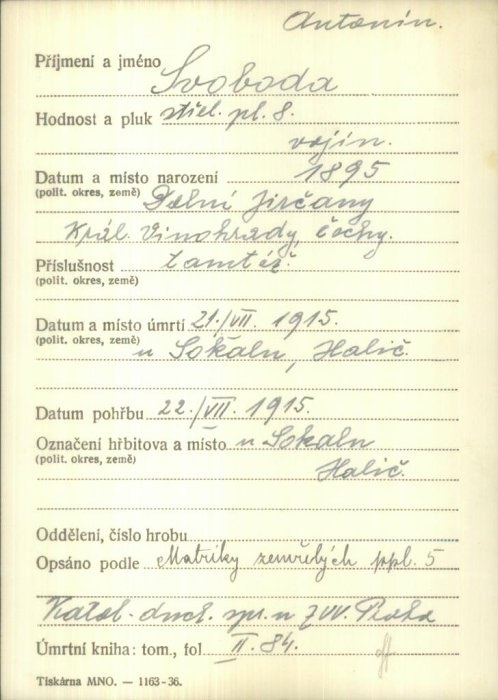 Antonín.
Příjmení a jméno Svoboda
Hodnost a pluk střel. pl. 8.
vojín.
Datum a místo narození 1895
(polit. okres, země) Dolní Jirčany
Král. Vinohrady, Čechy.
Příslušnost tamtéž.
(polit. okres, země)
Datum a místo úmrtí 21./VII. 1915.
(polit. okres, země) u Sokalu, Halič.
Datum pohřbu 22./VII. 1915.
Označení hřbitova a místo u Sokalu
(polit. okres, země) Halič.
Oddělení, číslo hrobu
Opsáno podle Matriky zemřelých ppl. 5
Katol. duch. spr. u ZVV. Praha
Úmrtní kniha: tom., fol II. 84.
Tiskárna MNO. — 1163-36.